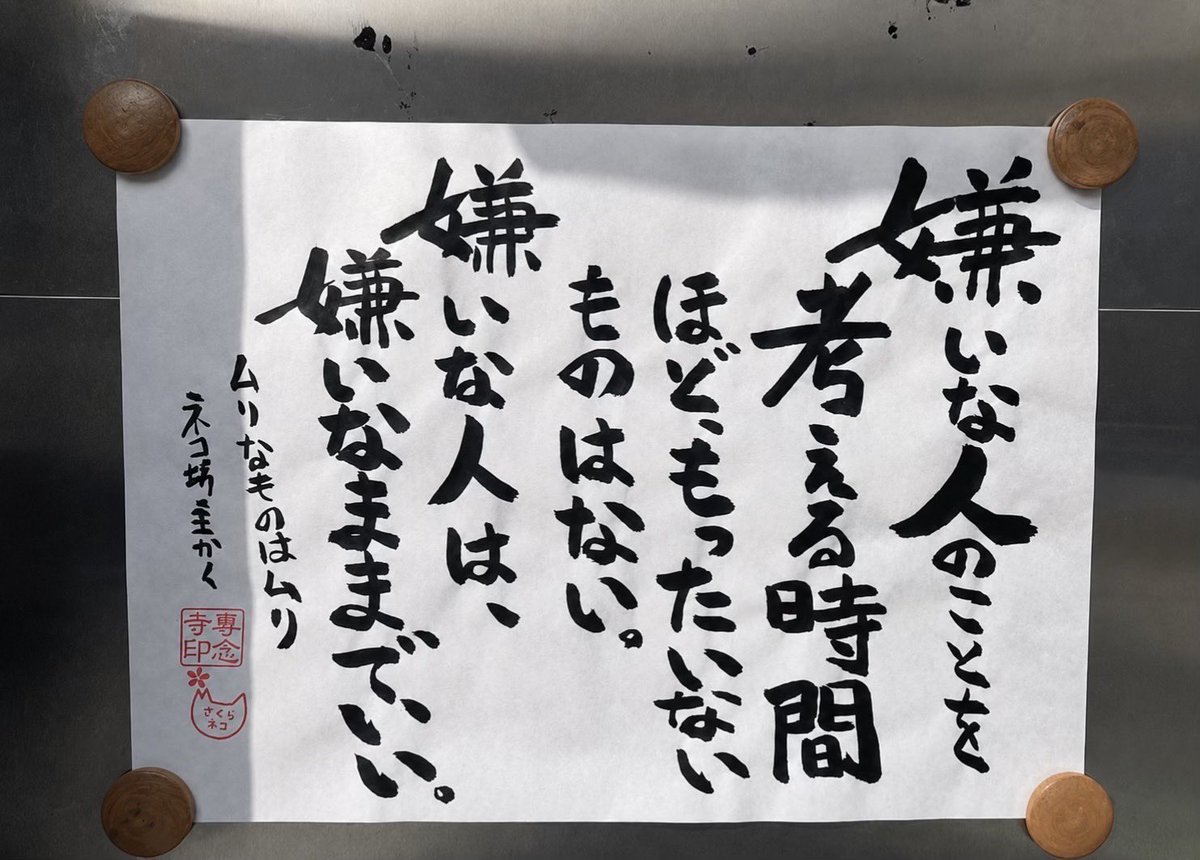 嫌いな人のことを
考える時間
ほど、もったいない
ものはない。
嫌いな人は、
嫌いなままでいい。
ムリなものはムリ
ネコ坊主かく
専念
寺印
さくら
ネコ